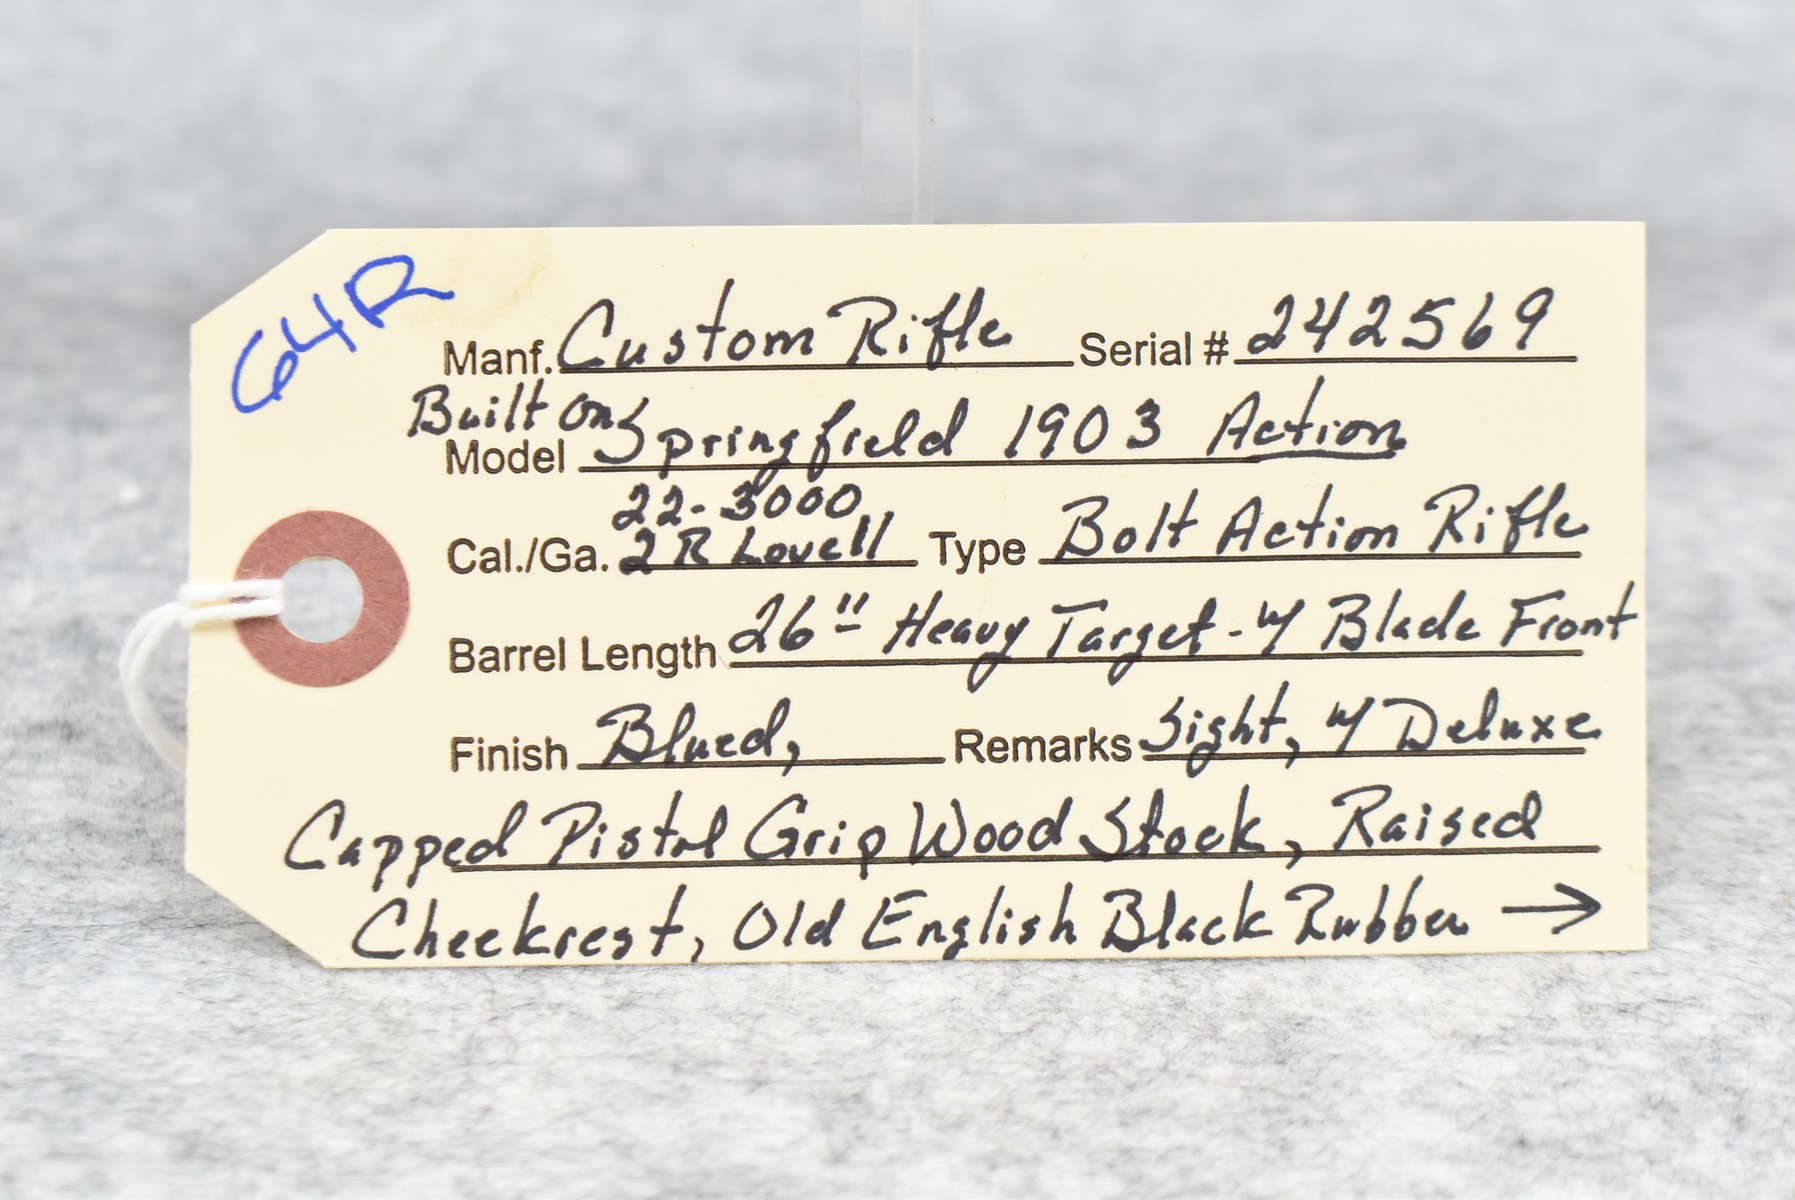 64R
Manf. Custom Rifle Serial # 242569
Built on
Model Springfield 1903 Action
22-3000
Cal./Ga. 2 R Lovell Type Bolt Action Rifle
Barrel Length 26" Heavy Target - w/ Blade Front
Finish Blued, Remarks Sight, w/ Deluxe
Capped Pistol Grip Wood Stock, Raised
Cheekrest, Old English Black Rubber →